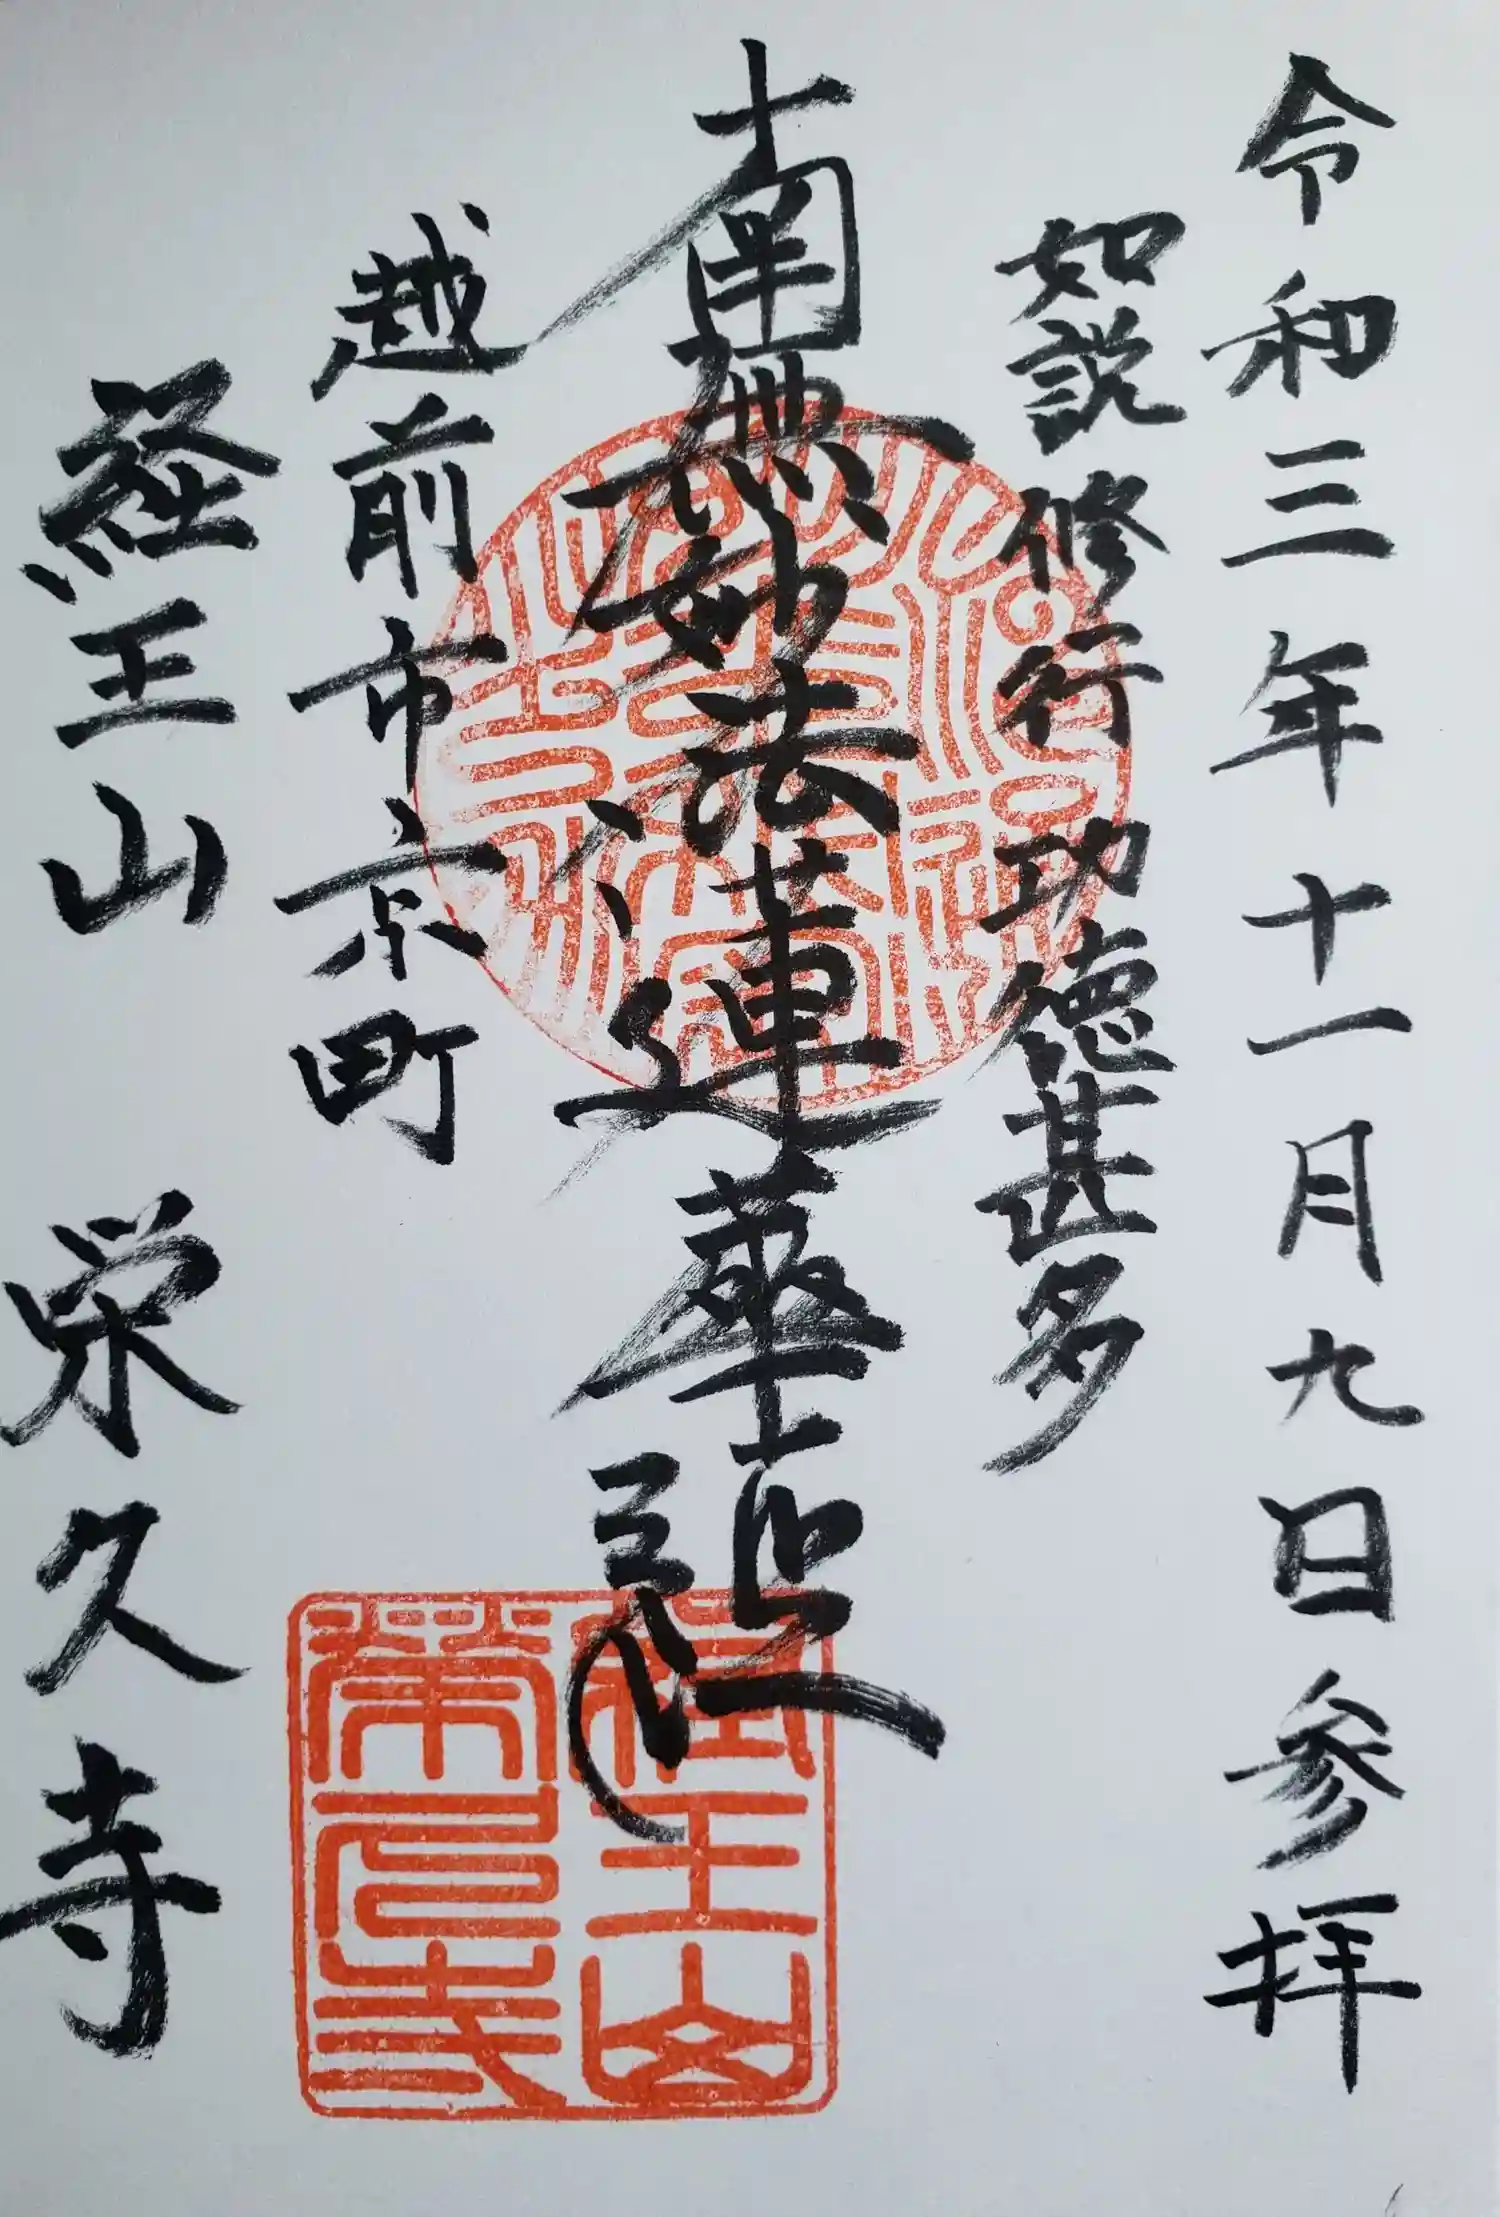 令和三年十一月九日参拝
如説修行功徳甚多
南無妙法蓮華経
越前市京町
経王山 栄久寺
経王山
栄久寺